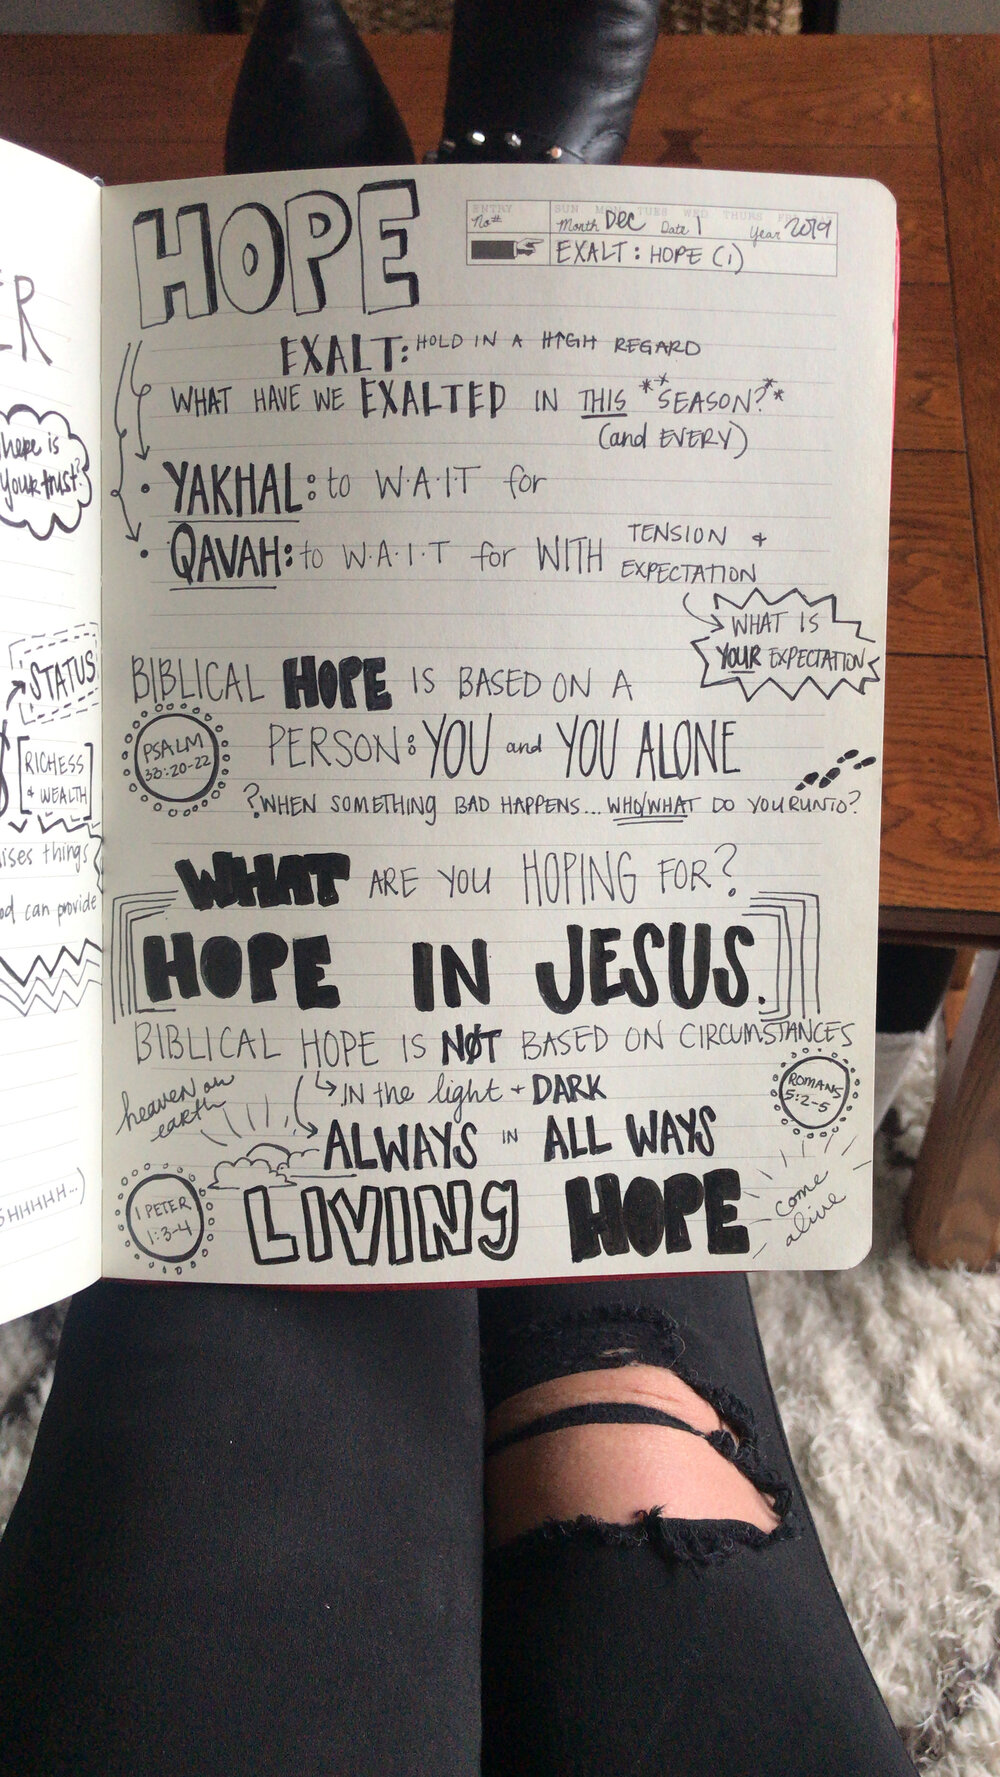 ER
here is
your trust?
STATUS
RICHESS
+ WEALTH
ises things
od can provide
SHHHHH...)
HOPE
ENTRY
No#
SUN MON TUES WED THURS
Month Dec Date 1 Year 2019
EXALT: HOPE (1)
EXALT: HOLD IN A HIGH REGARD
WHAT HAVE WE EXALTED IN THIS **SEASON?**
(and EVERY)
• YAKHAL: to W·A·I·T for
• QAVAH: to W·A·I·T for WITH TENSION + EXPECTATION
WHAT IS
YOUR EXPECTATION
BIBLICAL HOPE IS BASED ON A
PSALM
33:20-22
PERSON: YOU and YOU ALONE
?WHEN SOMETHING BAD HAPPENS... WHO/WHAT DO YOU RUN TO?
WHAT ARE YOU HOPING FOR?
HOPE IN JESUS.
BIBLICAL HOPE IS NOT BASED ON CIRCUMSTANCES
IN the light + DARK
ROMANS
5:2-5
heaven on
earth
ALWAYS IN ALL WAYS
1 PETER
1:3-4
LIVING HOPE
come
alive